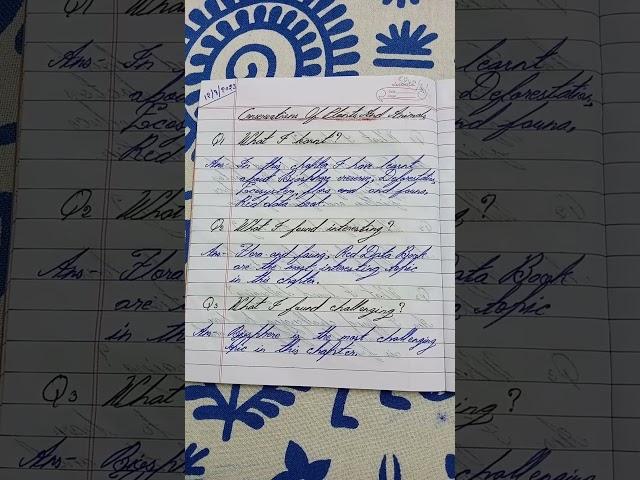 12/3/2023
Conservations Of Plants And Animals
Q1 What I learnt?
Ans- In this chapter I have learnt
about Biosphere reserve, Deforestation,
Ecosystem, flora and and fauna,
Red data boat.
Q2 What I found interesting?
Ans- Flora and fauna, Red Data Book
are the most interesting topic
in this chapter.
Q3 What I found challenging?
Ans- Biosphere is the most challenging
topic in this chapter.